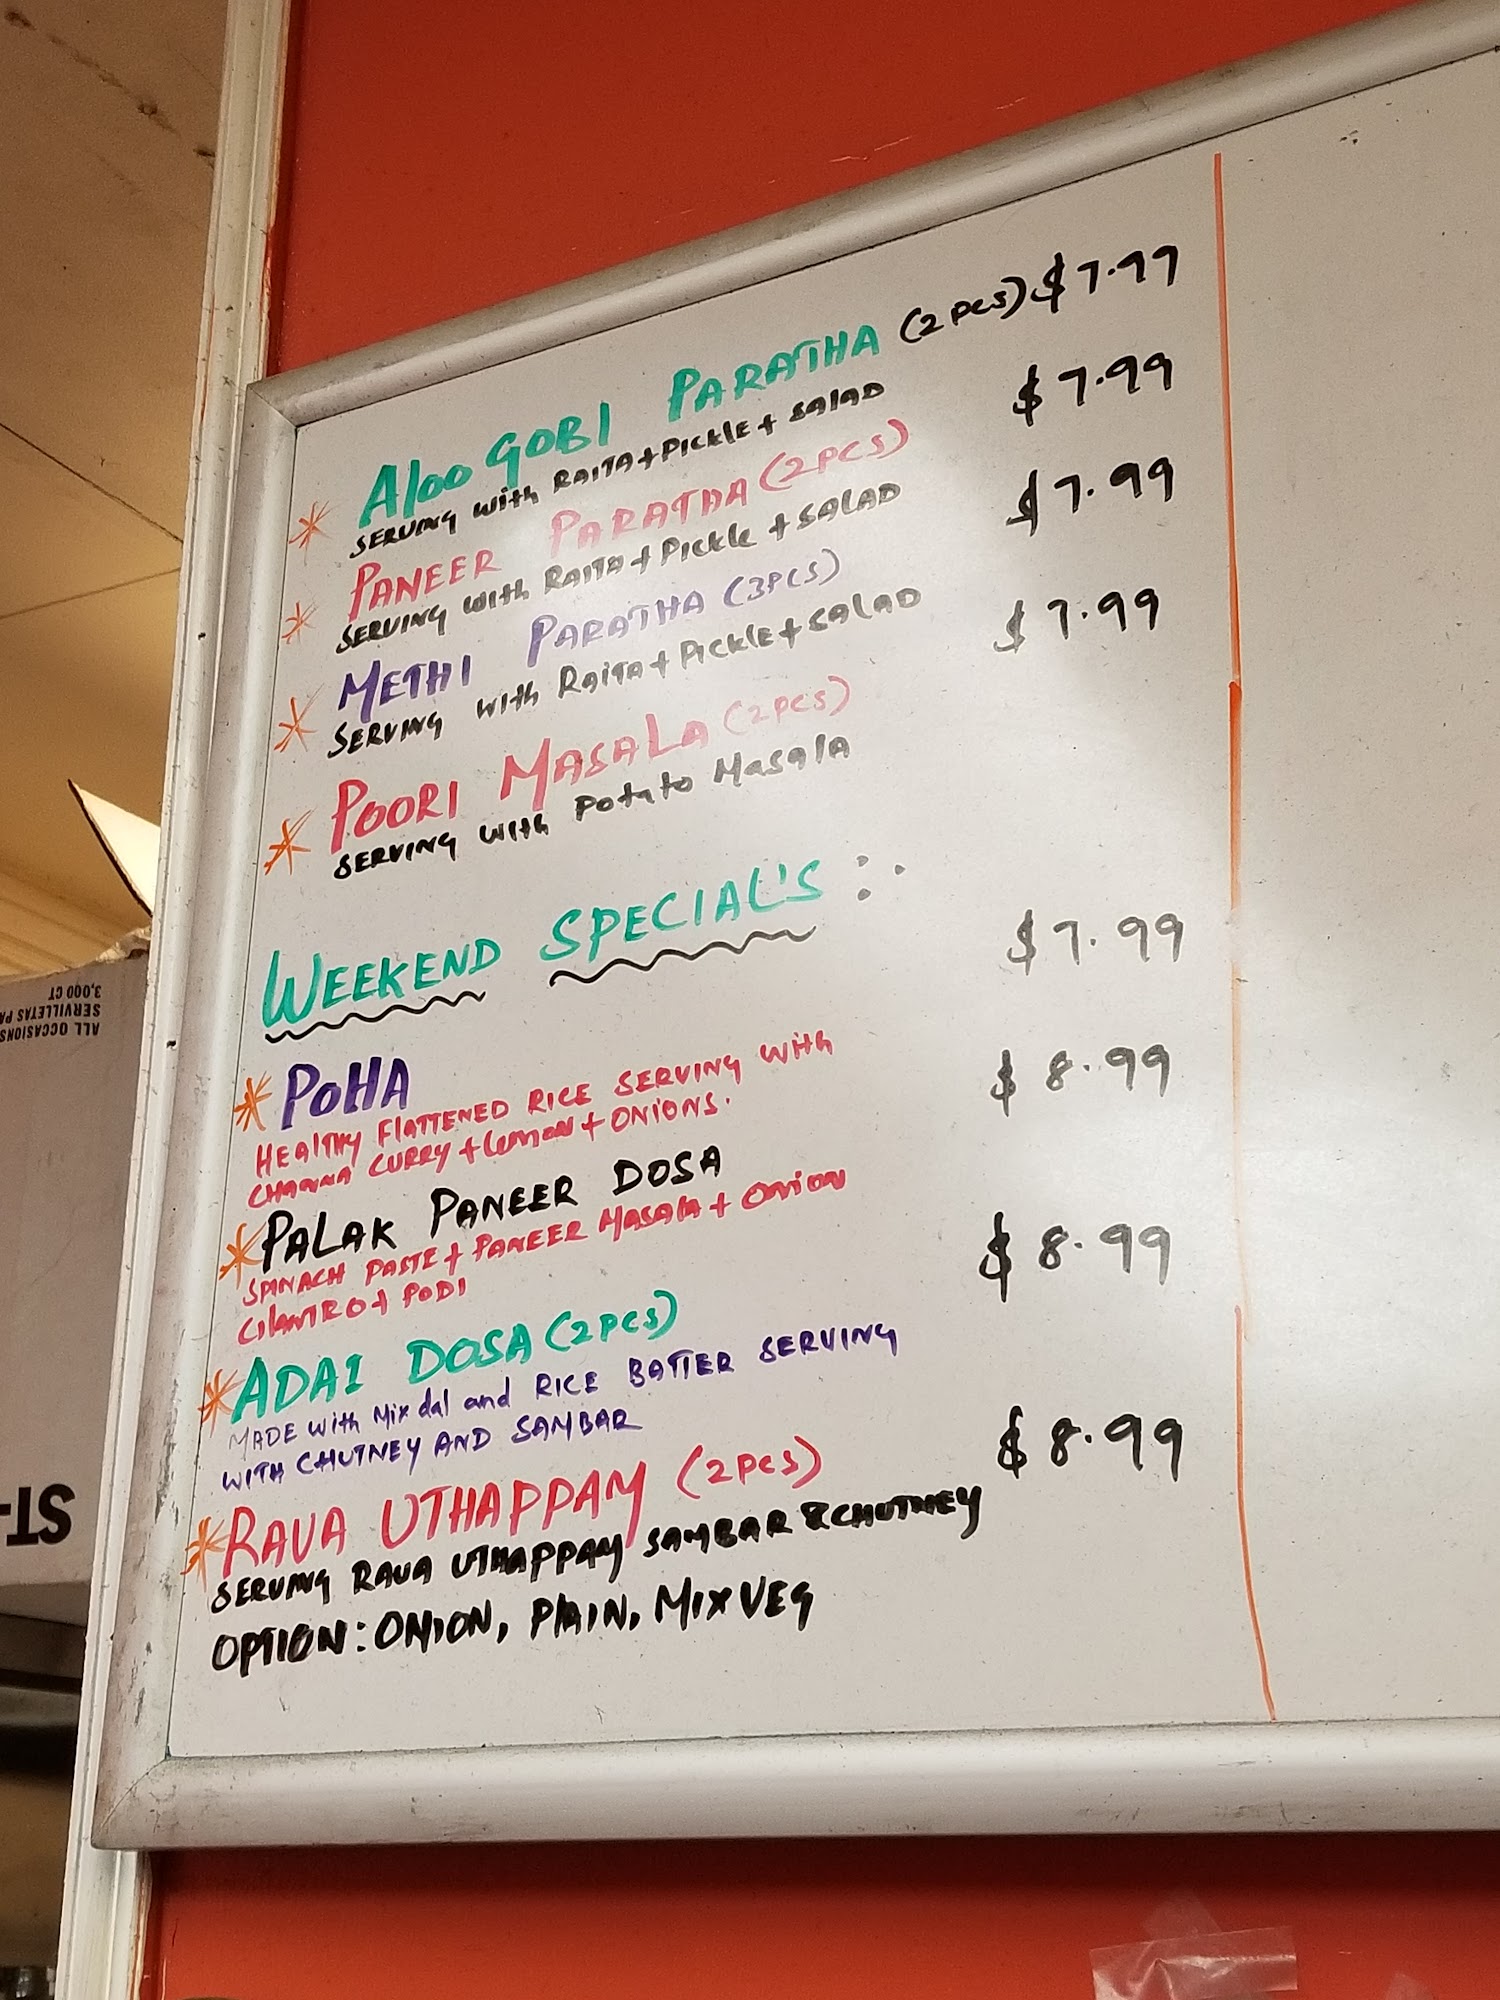 * Aloo GOBI PARATHA (2 PCS) $7.99
SERVING with RAITA + PICKLE + SALAD
* PANEER PARATHA (2 PCS) $7.99
SERVING with RAITA + PICKLE + SALAD
* METHI PARATHA (3PCS) $7.99
SERVING with RAITA + PICKLE + SALAD
* POORI MASALA (2 PCS) $7.99
SERVING with Potato Masala
WEEKEND SPECIAL'S :.
* POHA $7.99
HEALTHY FLATTENED RICE SERVING with
CHANNA CURRY + Lemon + ONIONS.
* PALAK PANEER DOSA $8.99
SPINACH PASTE + PANEER MASALA + Onion
CILANTRO + PODI
* ADAI DOSA (2 PCS) $8.99
MADE with Mix dal and RICE BATTER SERVING
WITH CHUTNEY AND SAMBAR
* RAVA UTHAPPAM (2 PCS) $8.99
SERVING RAVA UTHAPPAM SAMBAR & CHUTNEY
OPTION: ONION, PLAIN, MIX VEG
ALL OCCASIONS
SERVILLETAS PA
3,000 CT
ST-